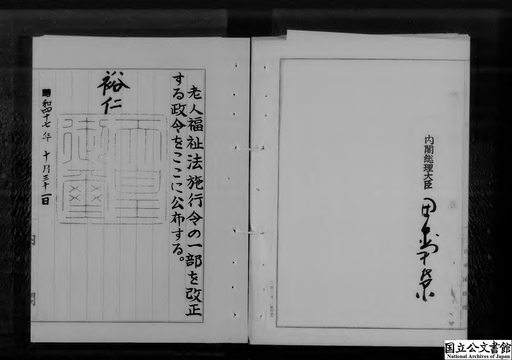 老人福祉法施行令の一部を改正
する政令をここに公布する。
裕仁
天皇
御璽
昭和四十七年 十月三十一日
内閣
内閣総理大臣
田中角栄
国立公文書館
National Archives of Japan